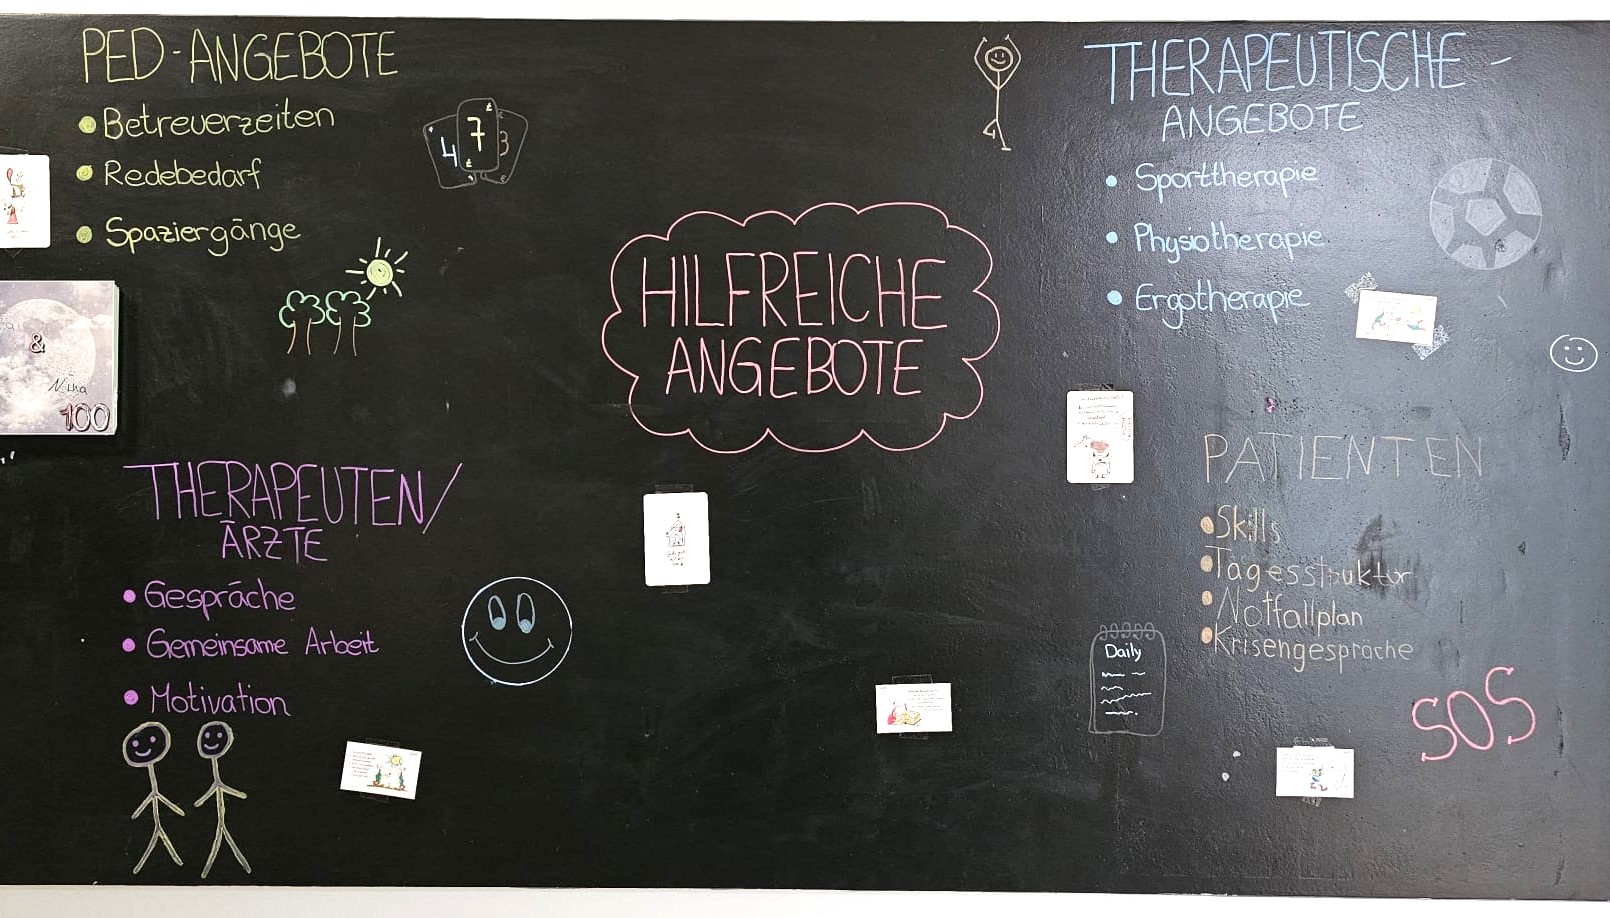 PED-ANGEBOTE
• Betreuerzeiten
• Redebedarf
• Spaziergänge
4 7 3
&
Nina
100
HILFREICHE
ANGEBOTE
THERAPEUTISCHE-
ANGEBOTE
• Sporttherapie
• Physiotherapie
• Ergotherapie
THERAPEUTEN/
ÄRZTE
• Gespräche
• Gemeinsame Arbeit
• Motivation
PATIENTEN
• Skills
• Tagesstruktur
• Notfallplan
• Krisengespräche
Daily
SOS